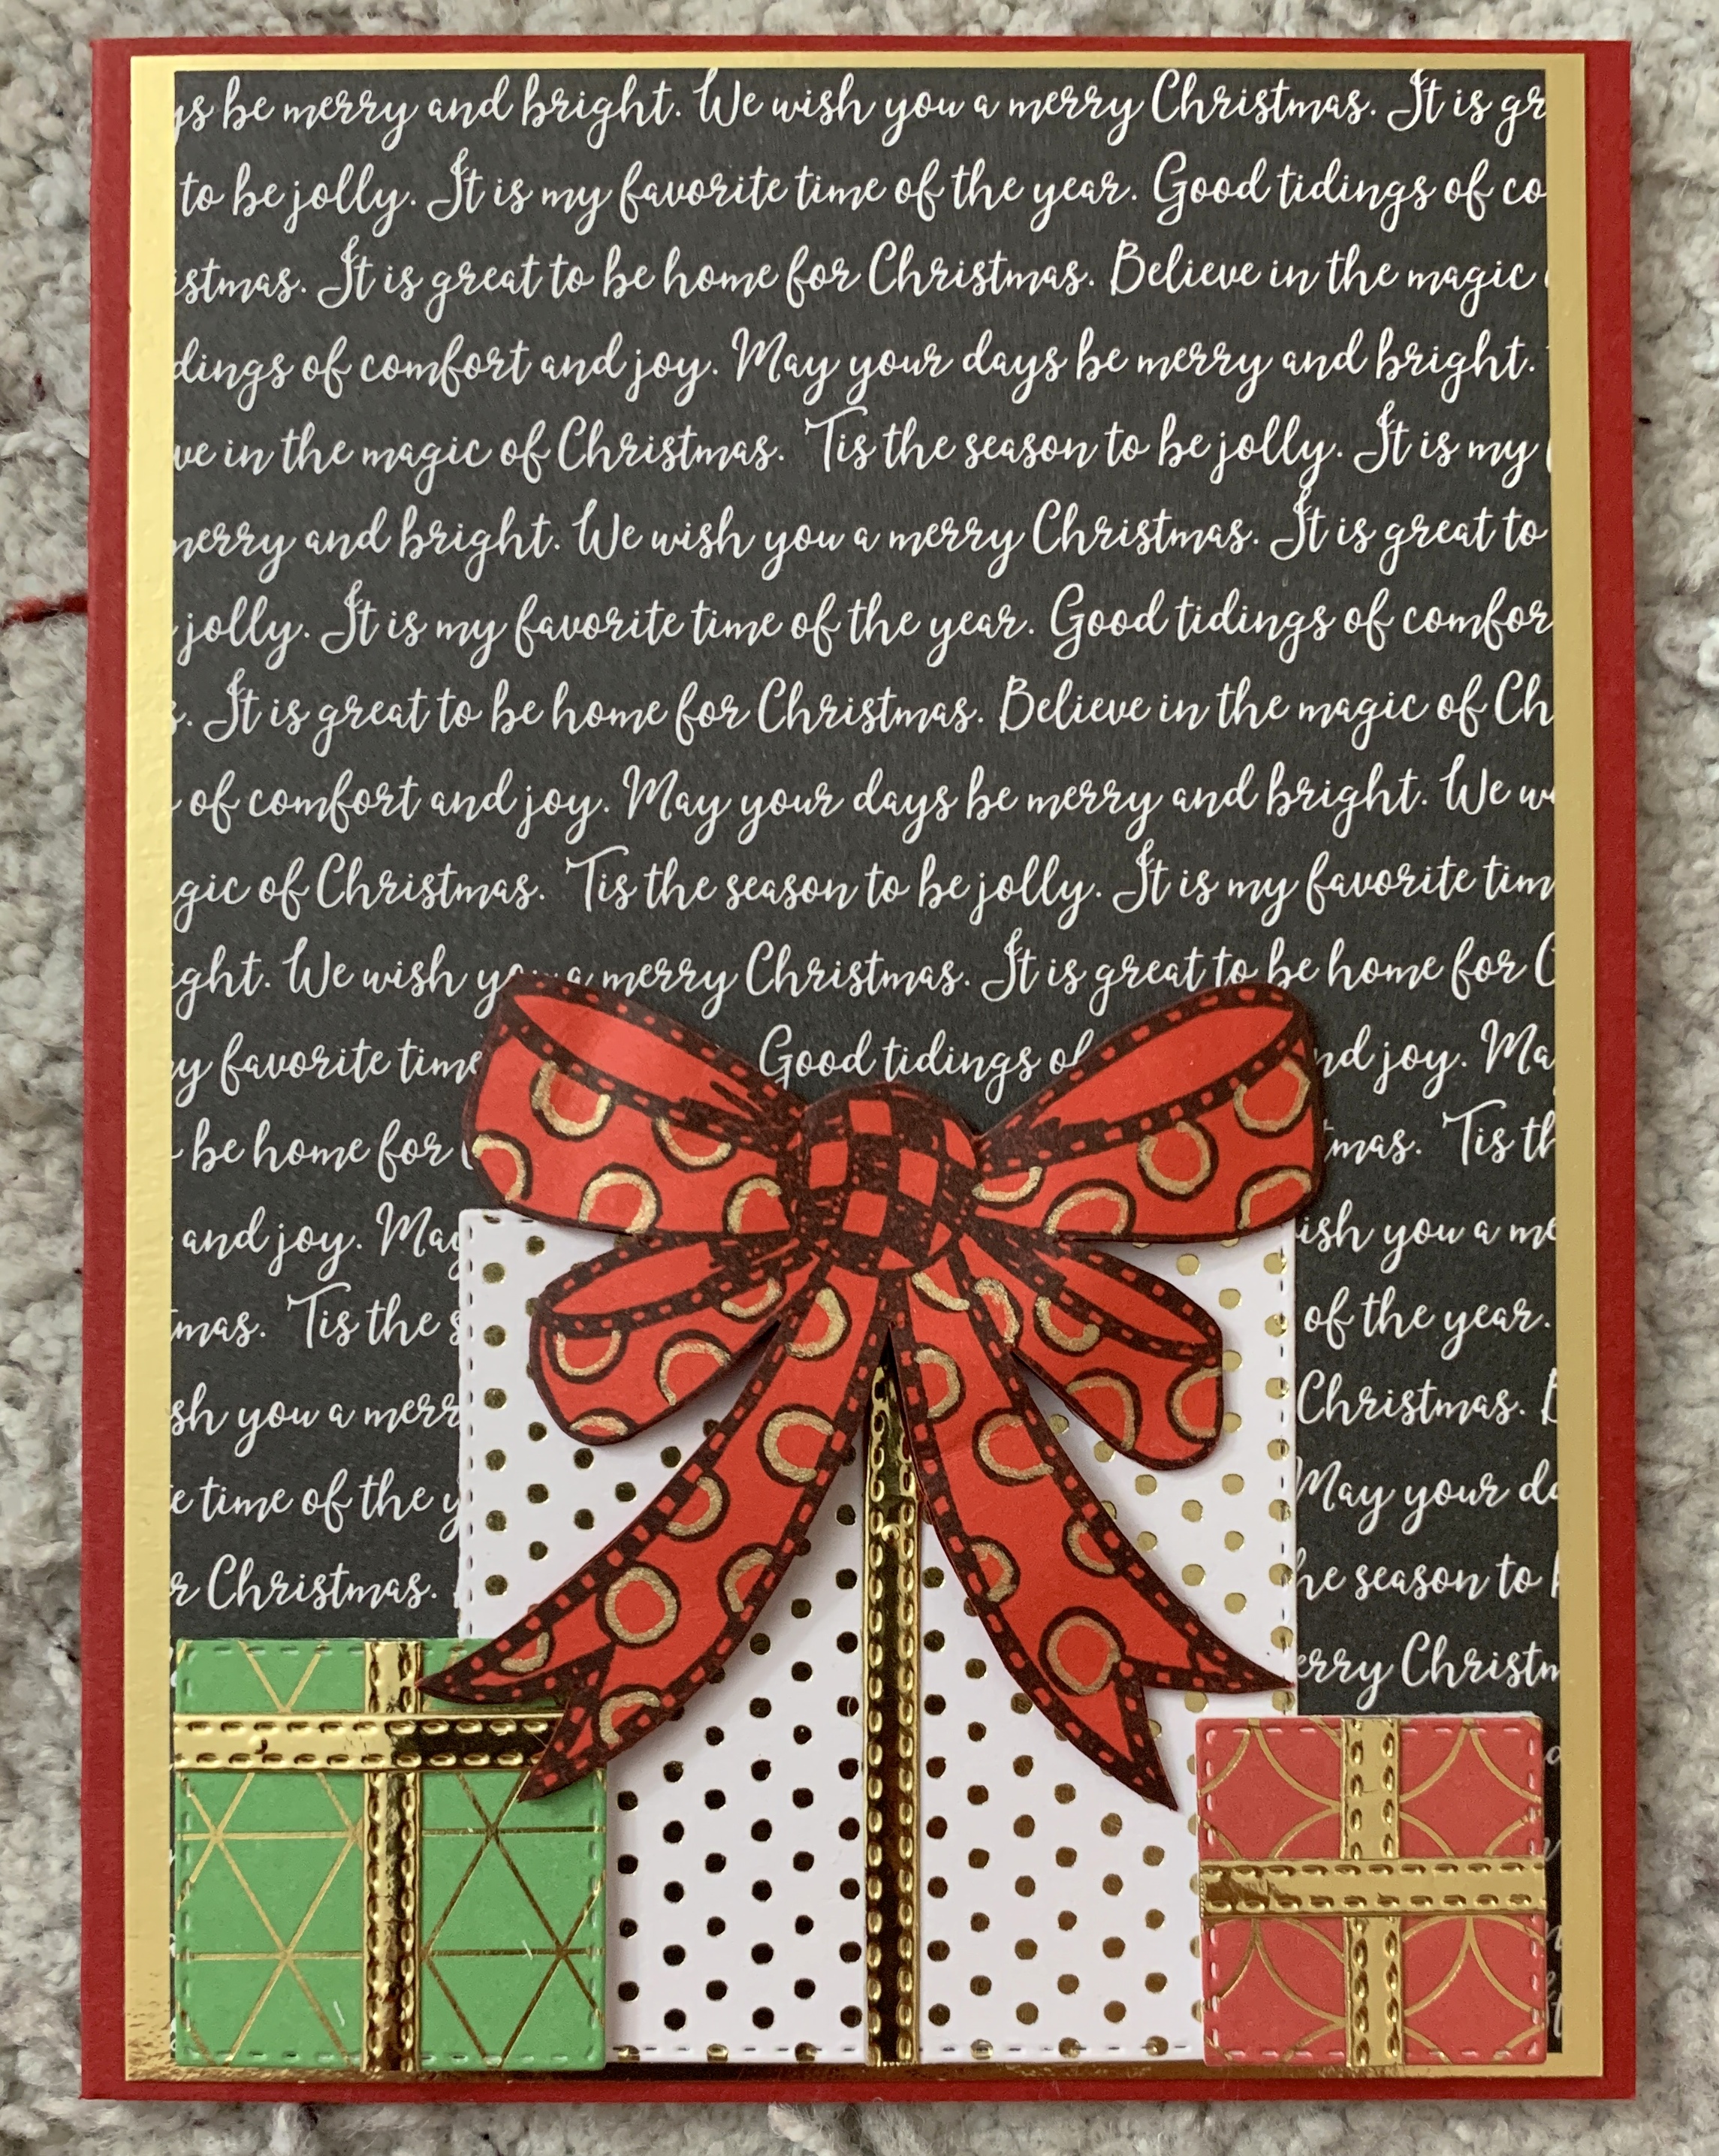 be merry and bright. We wish you a merry Christmas. It is gr
to be jolly. It is my favorite time of the year. Good tidings of co
stmas. It is great to be home for Christmas. Believe in the magic
dings of comfort and joy. May your days be merry and bright.
ve in the magic of Christmas. 'Tis the season to be jolly. It is my
merry and bright. We wish you a merry Christmas. It is great to
jolly. It is my favorite time of the year. Good tidings of comfor
. It is great to be home for Christmas. Believe in the magic of Ch
of comfort and joy. May your days be merry and bright. We w
gic of Christmas. 'Tis the season to be jolly. It is my favorite tim
ght. We wish you a merry Christmas. It is great to be home for C
y favorite time Good tidings of nd joy. Ma
be home for mas. 'Tis th
and joy. May ish you a me
mas. 'Tis the s of the year.
sh you a merr Christmas.
e time of the y May your da
r Christmas. he season to
erry Christm